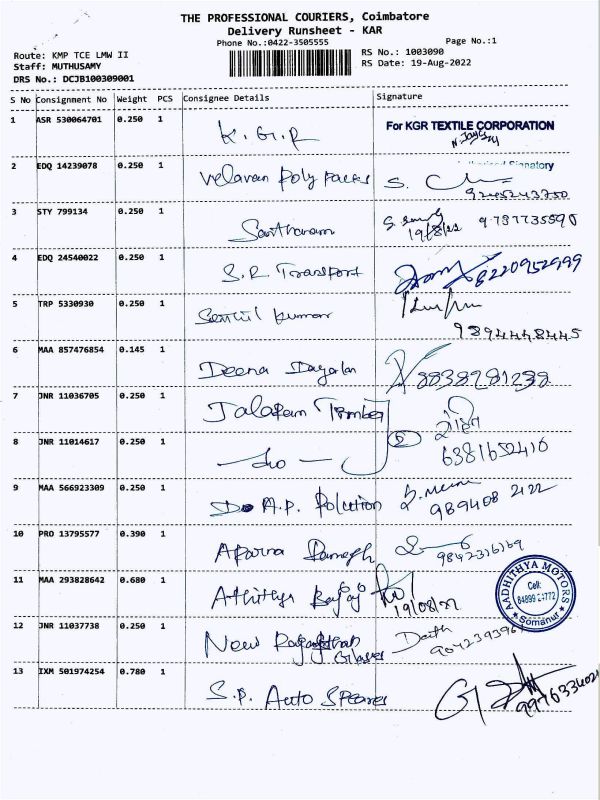 THE PROFESSIONAL COURIERS, Coimbatore
Delivery Runsheet - KAR
Phone No.:0422-3505555 Page No.:1
Route: KMP TCE LMW II RS No.: 1003090
Staff: MUTHUSAMY RS Date: 19-Aug-2022
DRS No.: DCJB100309001
S No Consignment No Weight PCS Consignee Details Signature
1 ASR 530064701 0.250 1 K. G. R For KGR TEXTILE CORPORATION
Signatory
2 EDQ 14239078 0.250 1 Velavan Poly Packs S.
9245243750
3 STY 799134 0.250 1 Santharam 19/8/22
4 EDQ 24540022 0.250 1 S.R. Transport 8220952999
5 TRP 5330930 0.250 1 Senthil kumar
9894448445
6 MAA 857476854 0.145 1 Deena Dayalan 8838981238
7 JNR 11036705 0.250 1 Jalaram Timber
8 JNR 11014617 0.250 1 — do — 2 6381652416
9 MAA 566923309 0.250 1 A.P. Polution 989408 2122
10 PRO 13795577 0.390 1 Aparna Ramesh 9842316169
11 MAA 293828642 0.680 1 Athithya Bajaj 19/08/22
AADHITHYA MOTORS
Cell:
Somanur
12 JNR 11037738 0.250 1 New Rajasthan
Glasses
13 IXM 501974254 0.780 1 S.P. Auto Speares